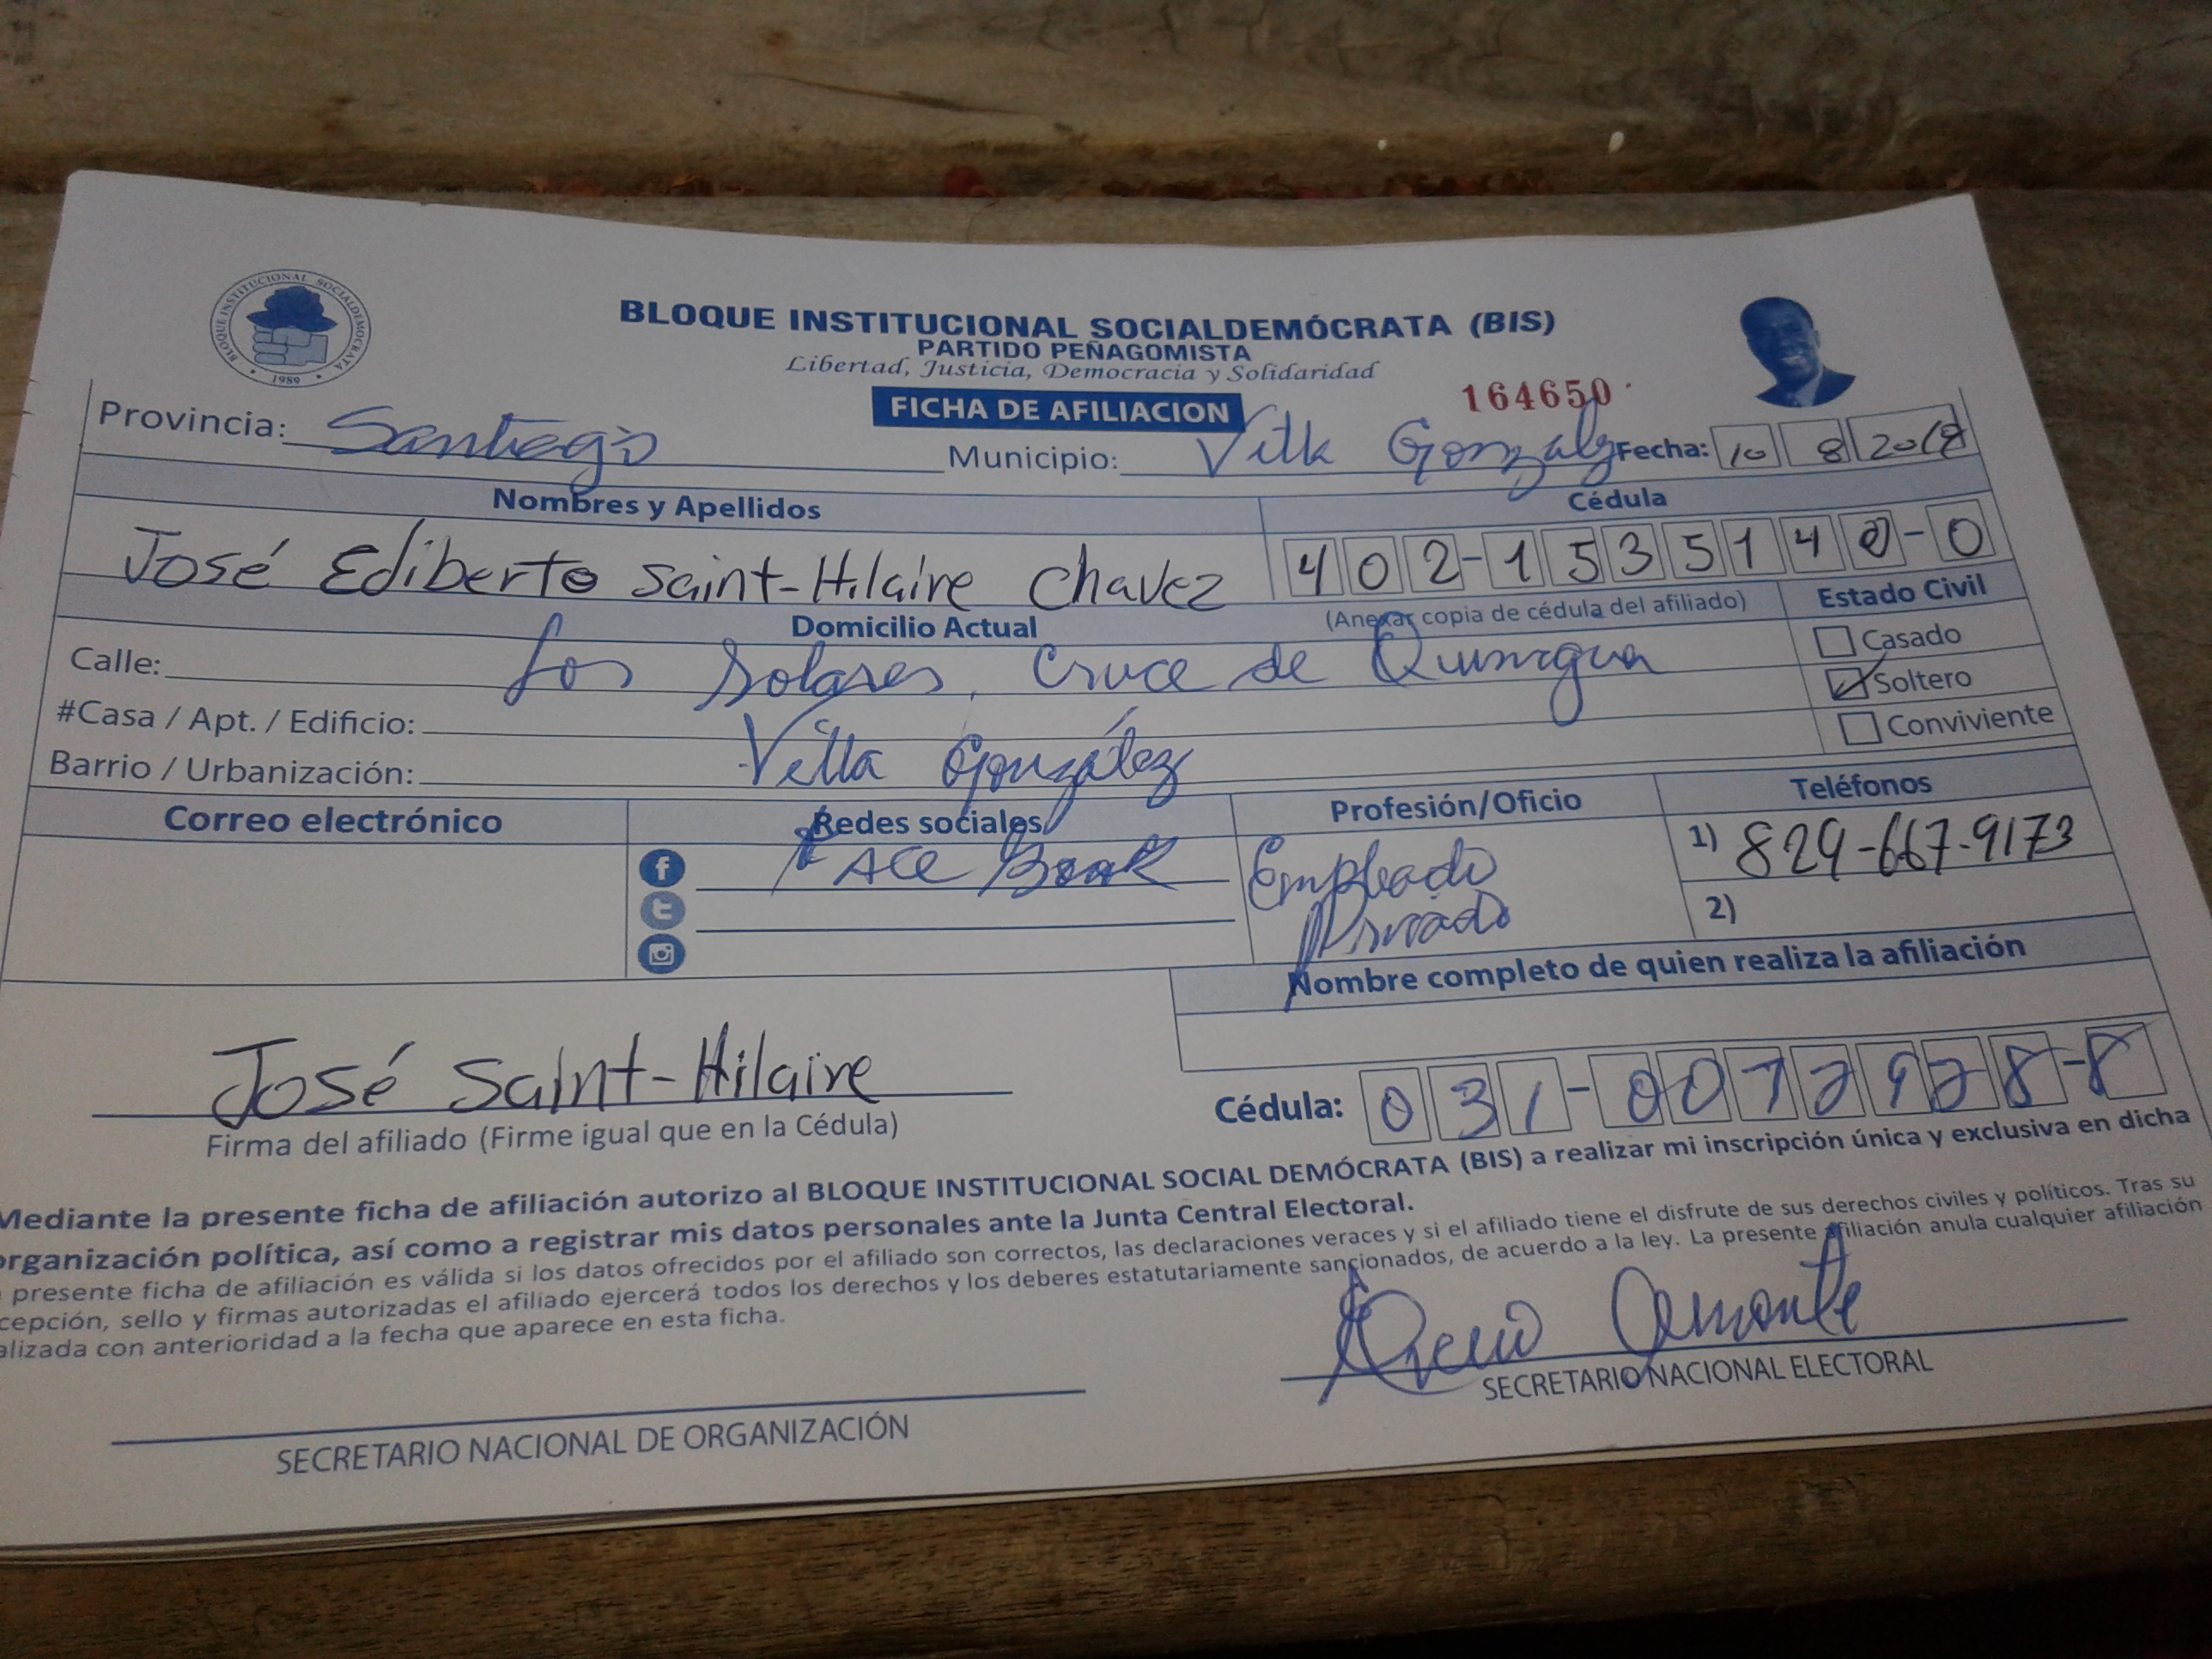 BLOQUE INSTITUCIONAL SOCIALDEMOCRATA
1989
BLOQUE INSTITUCIONAL SOCIALDEMÓCRATA (BIS)
PARTIDO PEÑAGOMISTA
Libertad, Justicia, Democracia y Solidaridad
FICHA DE AFILIACION
164650
Provincia: Santiago Municipio: Villa Gonzalz Fecha: 10 8
Nombres y Apellidos Cédula
José Ediberto Saint-Hilaire Chavez 402-1535140-0
(Anexar copia de cédula del afiliado)
Domicilio Actual Estado Civil
Calle: Los Solares, Cruce de Quinigua
Casado
Soltero
Conviviente
#Casa / Apt. / Edificio:
Barrio / Urbanización: Villa González
Correo electrónico Redes sociales Profesión/Oficio Teléfonos
Face Book Empleado Privado
1) 829-667-9173
2)
Nombre completo de quien realiza la afiliación
José Saint-Hilaire
Firma del afiliado (Firme igual que en la Cédula)
Cédula: 031-0072928-8
Mediante la presente ficha de afiliación autorizo al BLOQUE INSTITUCIONAL SOCIAL DEMÓCRATA (BIS) a realizar mi inscripción única y exclusiva en dicha
organización política, así como a registrar mis datos personales ante la Junta Central Electoral.
presente ficha de afiliación es válida si los datos ofrecidos por el afiliado son correctos, las declaraciones veraces y si el afiliado tiene el disfrute de sus derechos civiles y políticos. Tras su
cepción, sello y firmas autorizadas el afiliado ejercerá todos los derechos y los deberes estatutariamente sancionados, de acuerdo a la ley. La presente afiliación anula cualquier afiliación
alizada con anterioridad a la fecha que aparece en esta ficha.
SECRETARIO NACIONAL DE ORGANIZACIÓN
SECRETARIO NACIONAL ELECTORAL